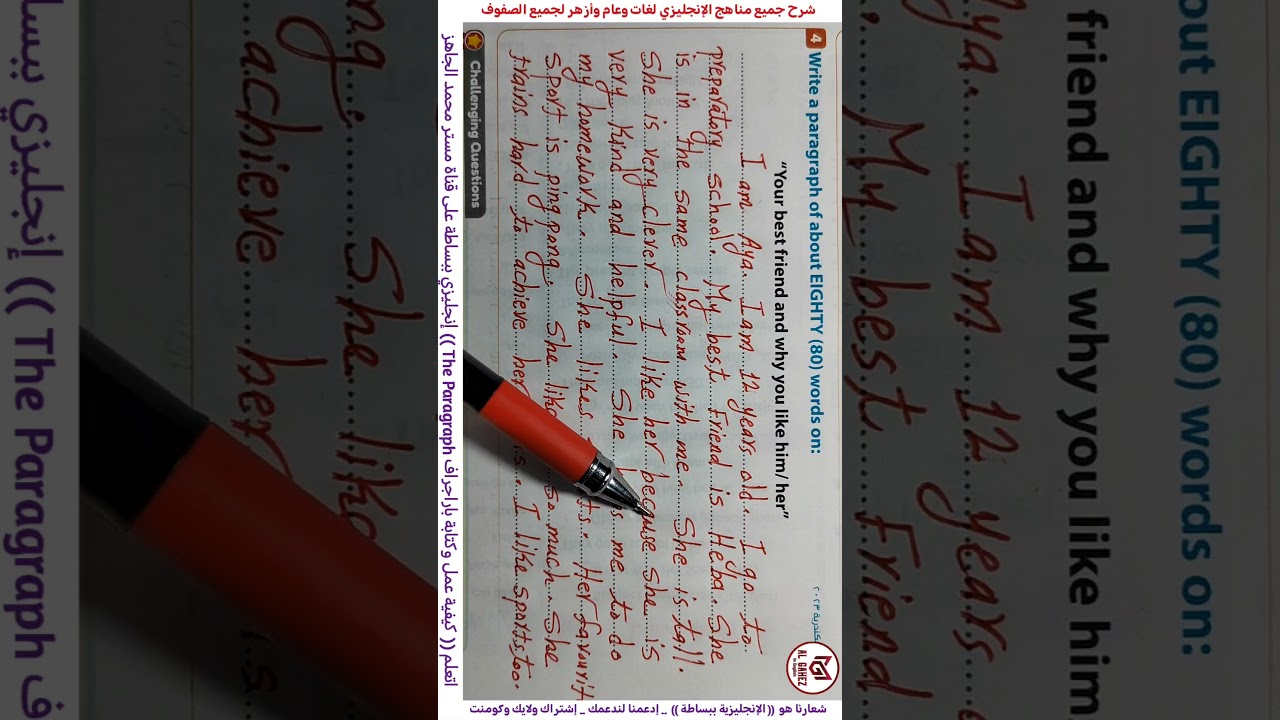 شرح جميع مناهج الإنجليزي لغات وعام وأزهر لجميع الصفوف
4 Write a paragraph of about EIGHTY (80) words on:
"Your best friend and why you like him/ her"
I am Aya. I am 12 years old. I go to
preparatory school. My best Friend is Heba. She
is in the same classroom with me. She is tall.
She is very clever. I like her because she is
very kind and helpful. She me to do
my homework. She likes Her favourit
sport is ping pong. She so much. She
trains hard to achieve her I like sports, too.
Challenging Questions
اتعلم (( كيفية عمل وكتابة باراجراف The Paragraph )) إنجليزي ببساطة على قناة مستر محمد الجاهز
AL GAHEZ
شعارنا هو (( الإنجليزية ببساطة )) _ إدعمنا لندعمك _ إشتراك ولايك وكومنت
out EIGHTY (80) words on:
friend and why you like him
ya. I am 12 years
My best Friend
She like
achieve her